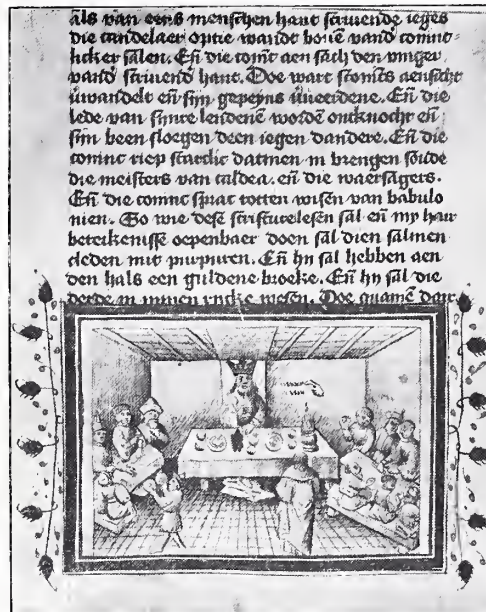 als van eens menschen hant scrivende ieges
die candelaer optie wandt bouē vand coninc-
licker salen. Eñ die coinc aen sach den vinger
vand scrivend hant. Doe wart sconincs aensicht
ūwandelt eñ sijn gepeyns ūveerdene. Eñ die
lede van sijnre lendenē wordē ontknocht eñ
sijn been sloegen deen iegen dandere. Eñ die
coninc riep starclic datmen in brengen soude
die meisters van caldea. eñ die waersagers.
Eñ die coninc sprac totten wisen van babulo
nien. So wie dese scrifture lesen sal eñ my haer
beteikenisse oepenbaer doen sal dien salmen
cleden mit purpuren. Eñ hy sal hebben aen
den hals een guldene broeke. Eñ hy sal die
derde in minen rycke wesen. Doe quamē dair